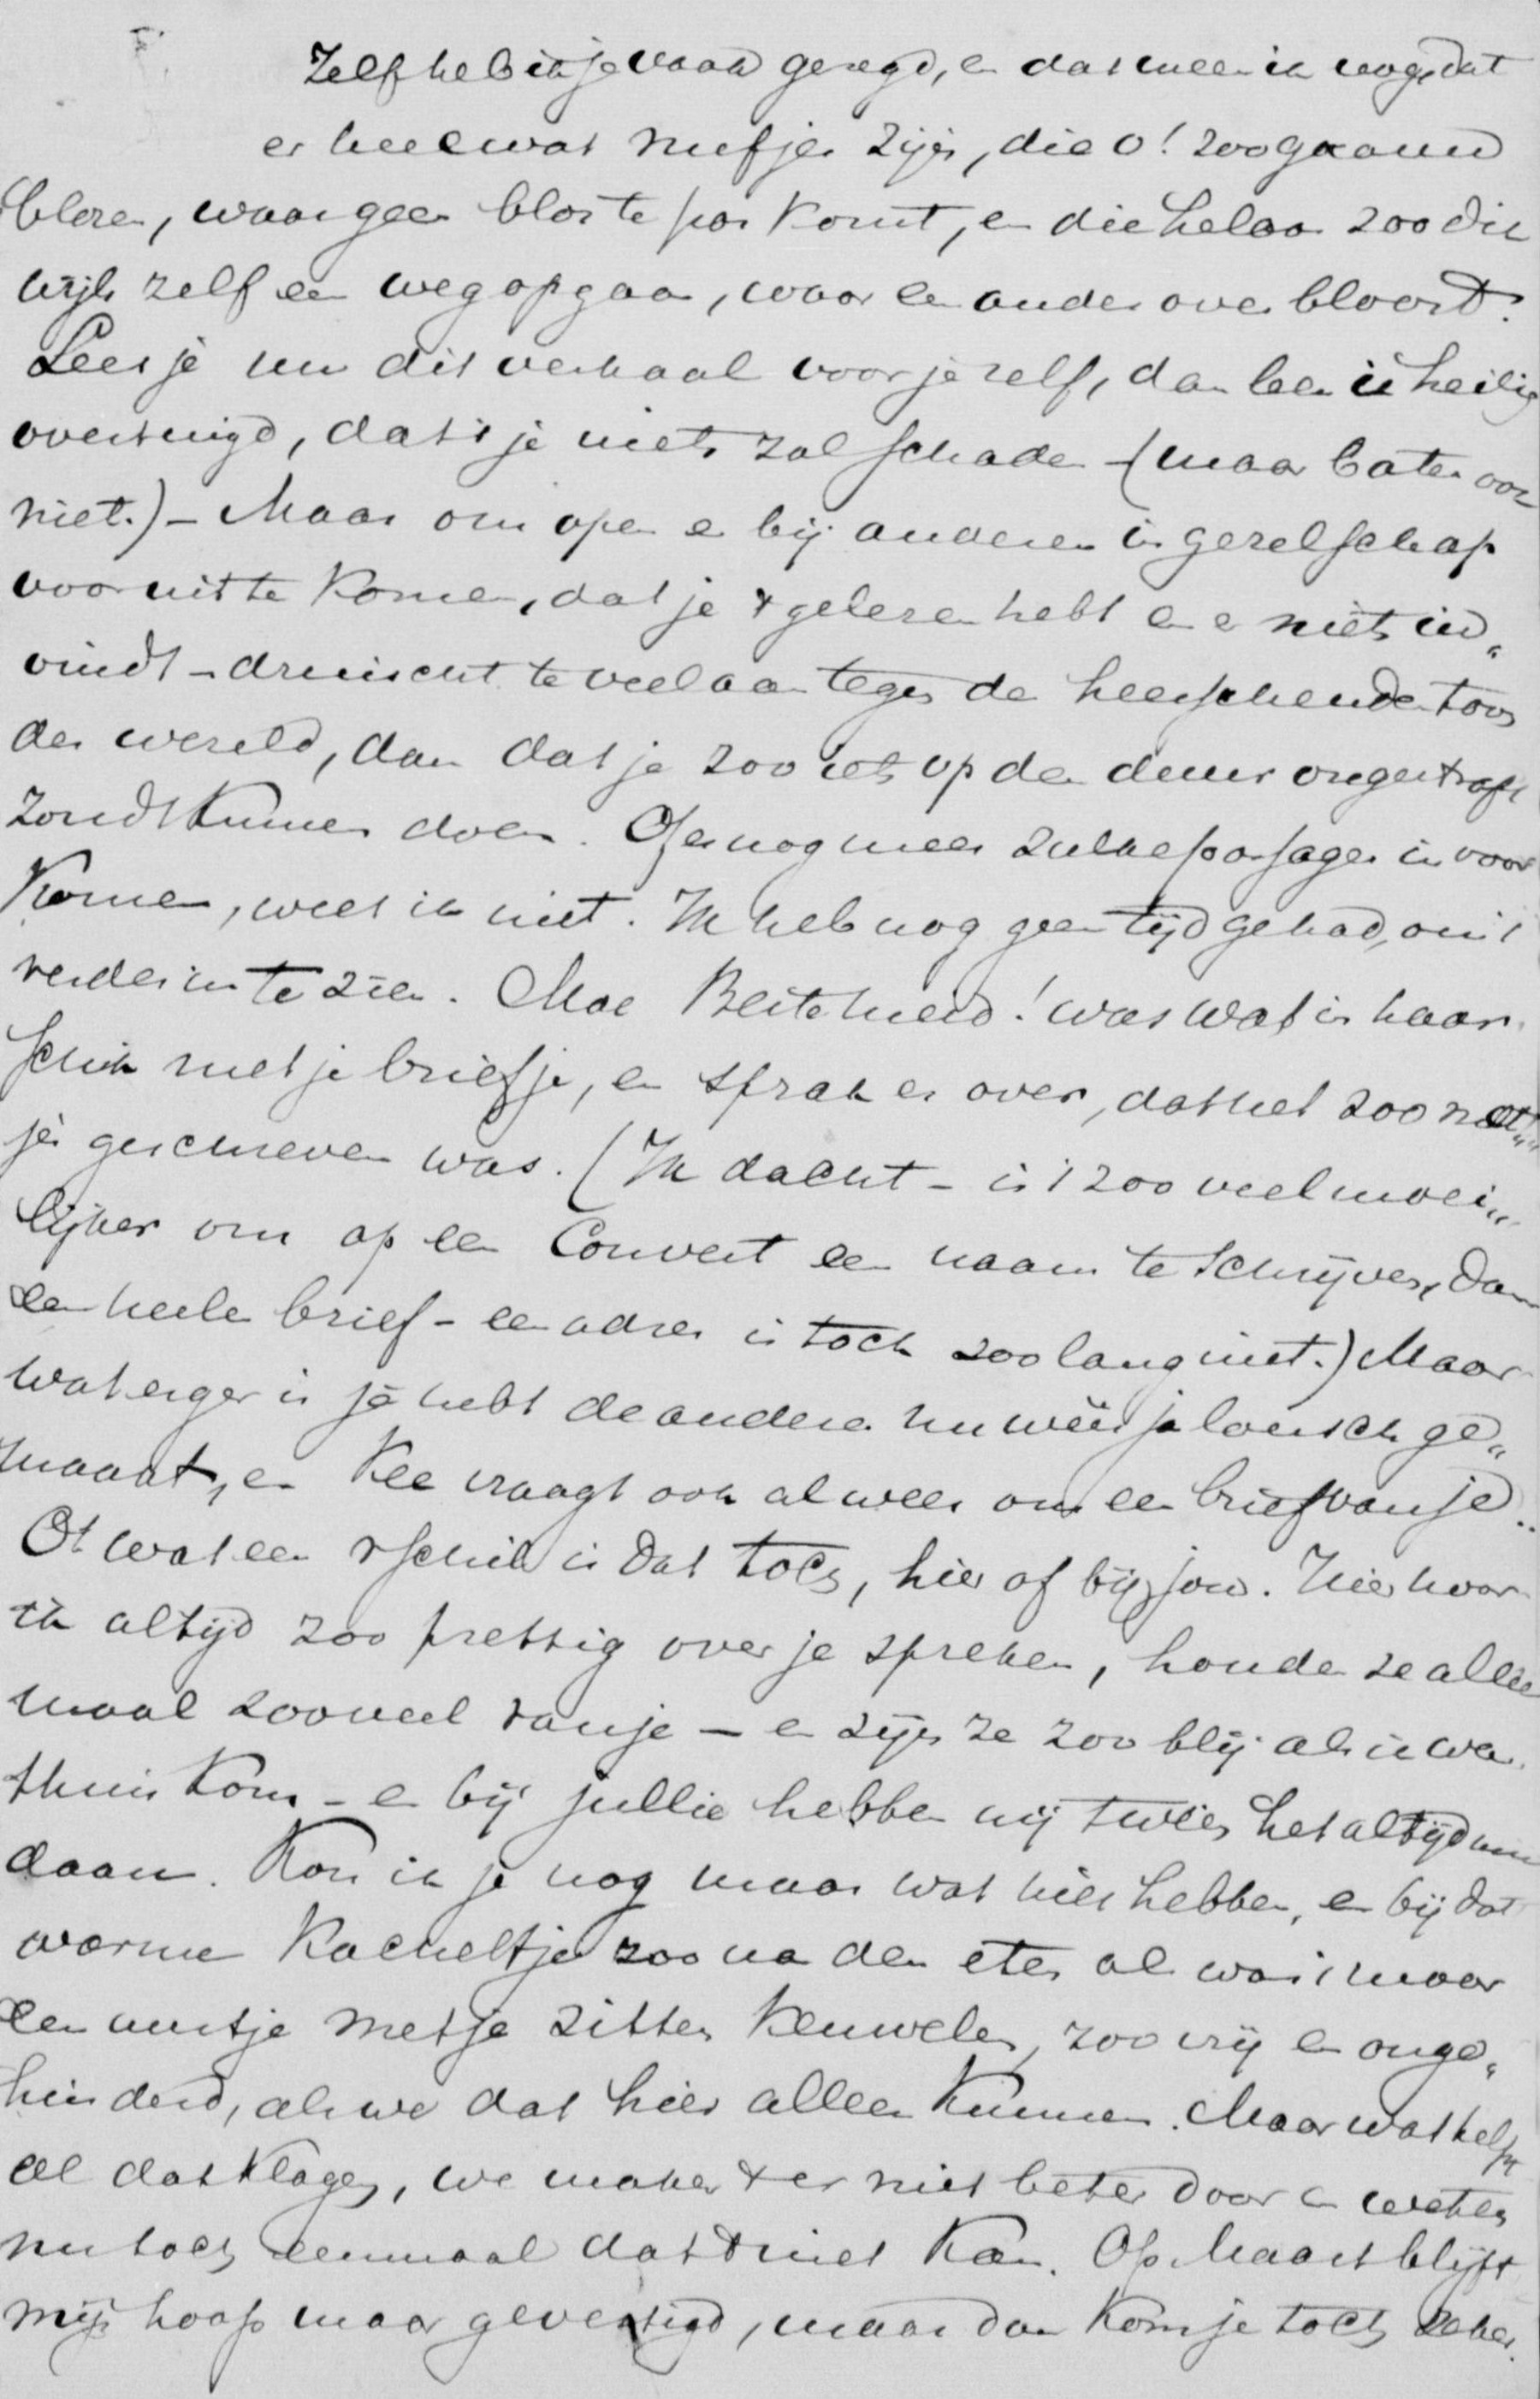 Zelf heb ik je vaak gezegd, en dat meen ik nog, dat
er heel wat nufjes zijn, die o! zoo gaauw
blozen, waar geen blos te pas komt, en die helaas zoo dik
wijls zelf een weg opgaan, waar een ander over bloost.
Lees je nu dit verhaal voor je zelf, dan ben ik heilig
overtuigd, dat 't je niets zal schaden - (maar baten ook
niet.) - Maar om open en bij anderen in gezelschap
vooruit te komen, dat je 't gelezen hebt en er niets in
vindt - druischt te veel aan tegen de heerschende toon
der wereld, dan dat je zoo iets op den duur ongestraft
zoudt kunnen doen. Of er nog meer zulke passages in voor
komen, weet ik niet. Ik heb nog geen tijd gehad, om 't
verder in te zien. Moe was wat in haar
schik met je briefje, en sprak er over, dat het zoo net„
jes geschreven was. (Ik dacht - is 't zoo veel moei„
lijker om op een Couvert een naam te schrijven, dan
een heele brief - een adres is toch zoo lang niet.) Maar
wat erger is je hebt de anderen nu weer jaloersch ge„
maakt, en Kee vraagt ook al weer om een brief van je..
Ot wat een verschil is dat toch, hier of bij jou. Hier hoor
ik altijd zoo prettig over je spreken, houden ze alle
maal zooveel van je - en zijn ze zoo blij als ik van
thuis kom - en bij jullie hebben wij tweeën het altijd
gedaan. Kon ik je nog maar wat hier hebben, en bij dat
warme Kacheltje zoo na den eten al was 't maar
een uurtje met je zitten keuvelen, zoo vrij en onge„
hinderd, als we dat hier alleen kunnen. Maar wat helpt
al dat klagen, we maken 't er niet beter door en weten
nu toch eenmaal dat 't niet kan. Op Maart blijft
mijn hoop maar gevestigd, maar dan kom je toch zeker.